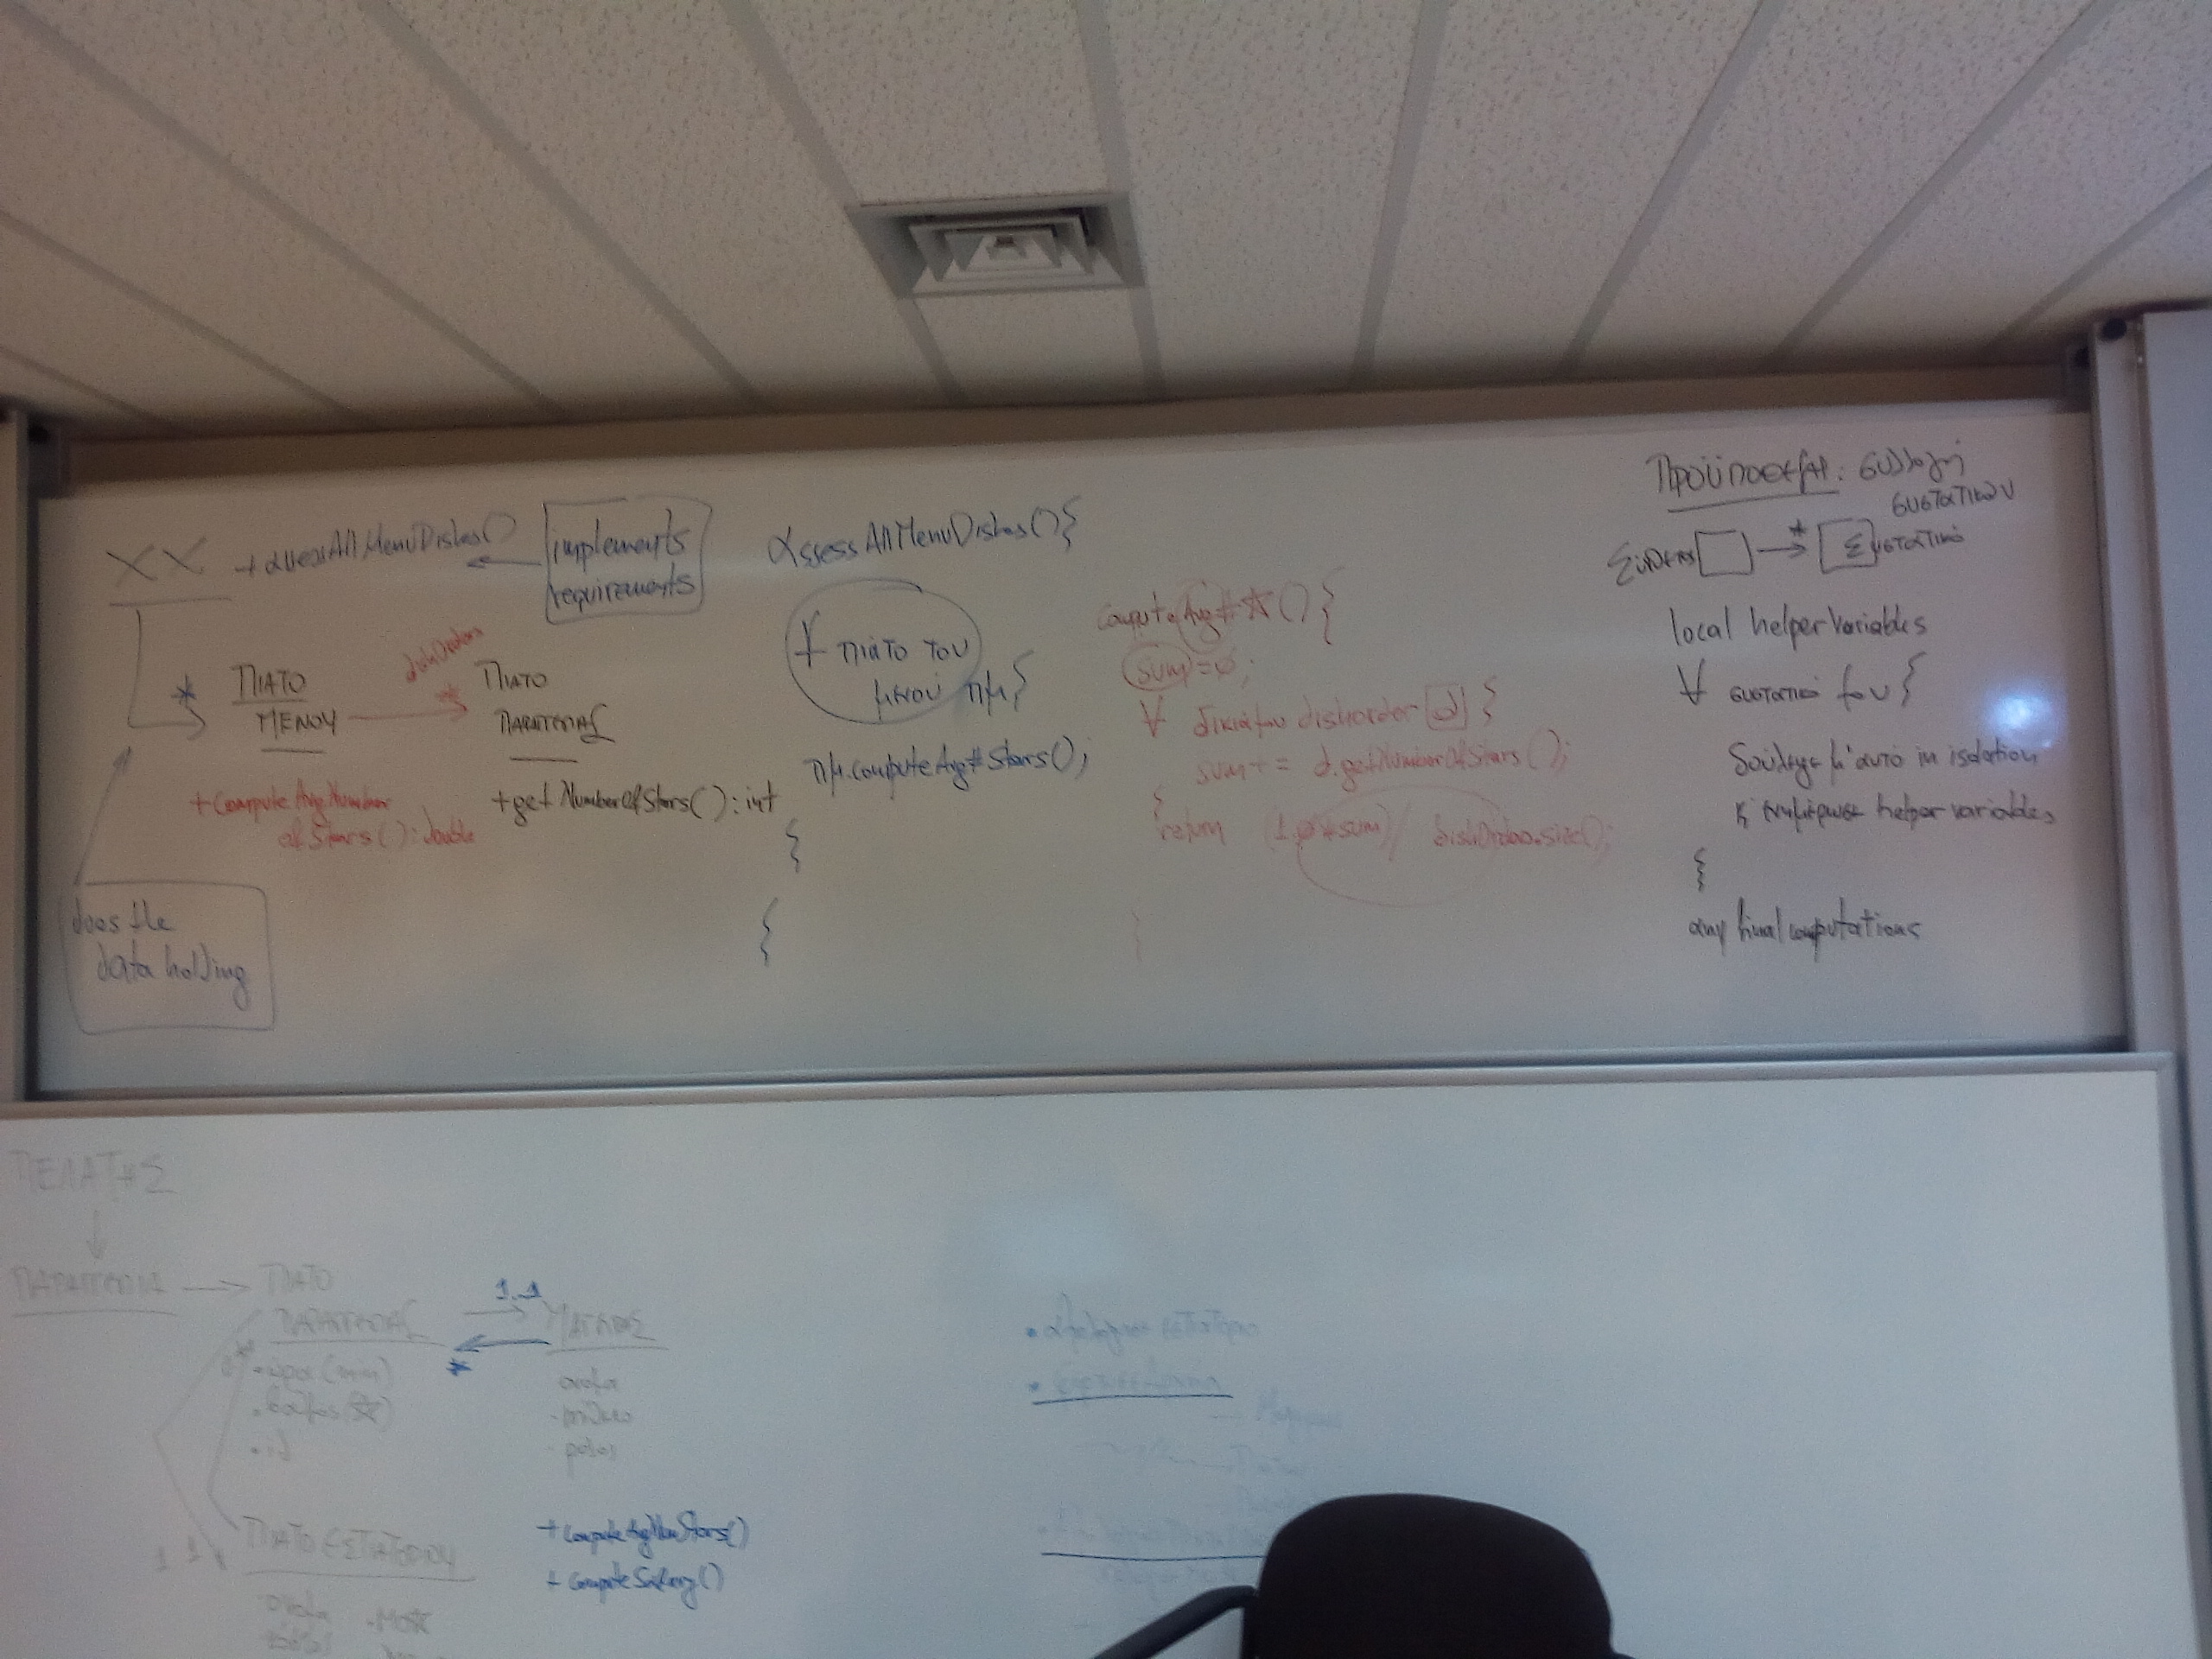 XX
+ assessAllMenuDishes()
implements
requirements
dishOrders
*
ΠΙΑΤΟ
ΜΕΝΟΥ
*
ΠΙΑΤΟ
ΠΑΡΑΓΓΕΛΙΑΣ
+ Compute Avg Number
of Stars() : double
+ get NumberOfStars() : int
does the
data holding
Assess All MenuDishes() {
∀ πιάτο του
μενού πμ {
πμ.computeAvg#Stars();
}
}
compute Avg# ☆ () {
sum = 0;
∀ δικιά μου dishorder d {
sum += d.getNumberOfStars();
}
return (1.0 * sum) / dishOrders.size();
}
Προϋποθέτει: συλλογή
συστατικού
Σύνθετος → * Συστατικό
local helper variables
∀ συστατικό μου {
δούλεψε μ' αυτό in isolation
κ ενημέρωσε helper variables
}
any final computations
ΠΕΛΑΤΗΣ
ΠΑΡΑΓΓΕΛΙΑ
ΠΙΑΤΟ
ΠΑΡΑΓΓΕΛΙΑΣ
1..1
*
ΜΑΓΕΙΡΑΣ
• ώρα (min)
• id
ΠΙΑΤΟ ΕΣΤΙΑΤΟΡΙΟΥ
+ computeAvgNumStars()
+ computeSalary()